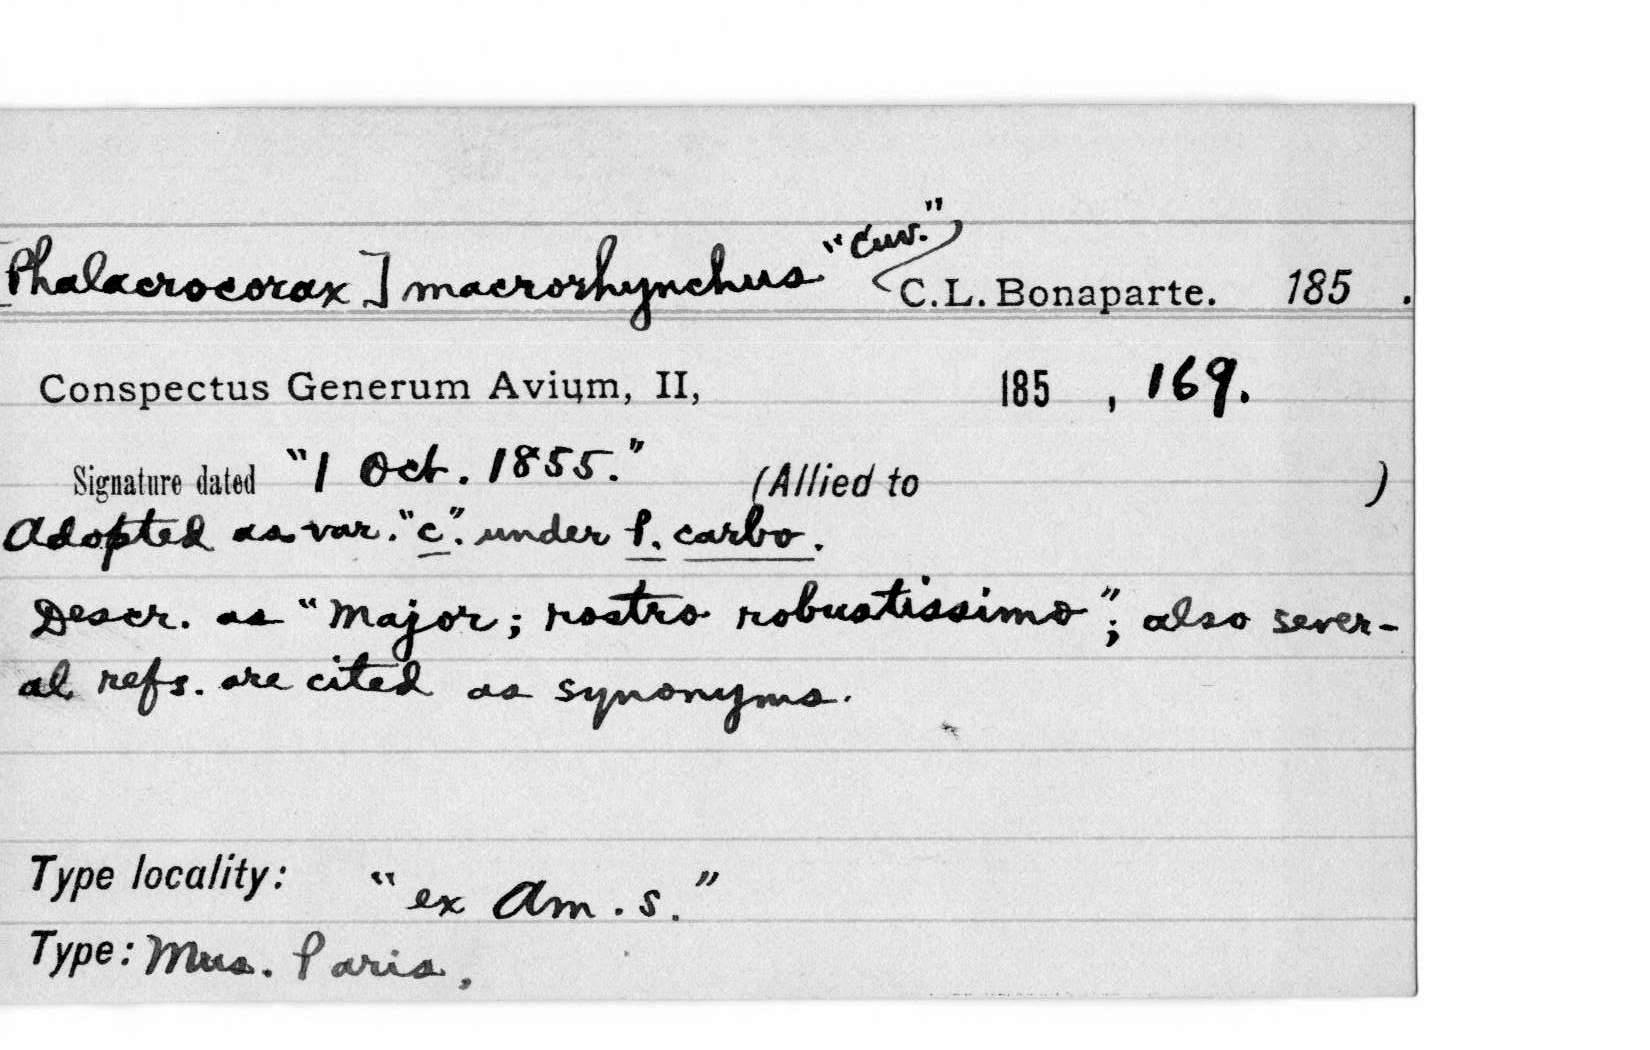 [Phalacrocorax] macrorhynchus "Cuv." C.L. Bonaparte. 185 .
Conspectus Generum Avium, II, 185 , 169.
Signature dated "1 Oct. 1855." (Allied to )
Adopted as var. "c". under P. carbo.
Descr. as "Major; rostro robustissimo"; also sever-
al refs. are cited as synonyms.
Type locality: "ex Am. s."
Type: Mus. Paris.